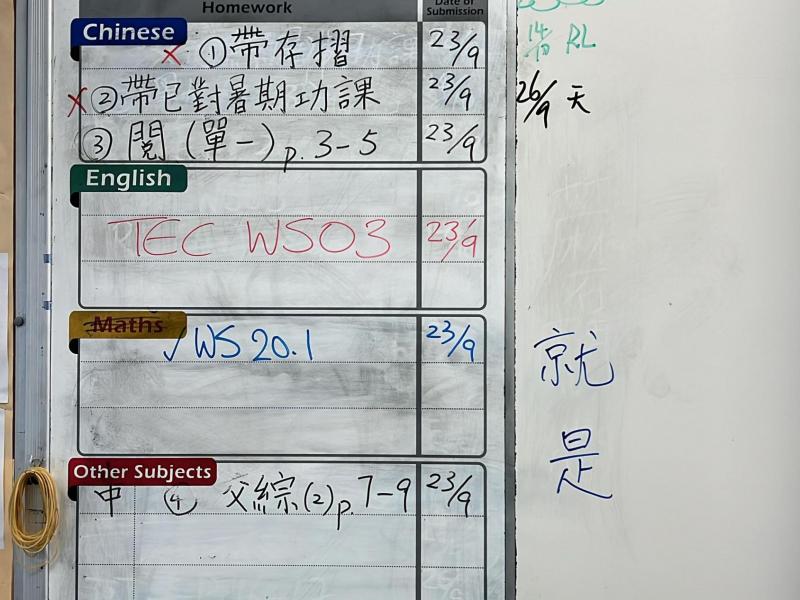 Homework
Date of Submission
Chinese
①帶存摺 23/9
②帶已對暑期功課 23/9
③閱(單一)p.3-5 23/9
English
TEC WS03 23/9
Maths
✓WS 20.1 23/9
Other Subjects
中 ④ 父綜(2)p.7-9 23/9
14/10 RL
26/9 天
就
是